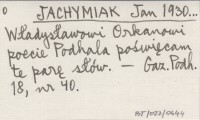 JACHYMIAK Jan 1930...
Władysławowi Orkanowi
poecie Podhala poświęcam
te parę słów. — Gaz. Podh.
18, nr 40.
BJ/022/0644